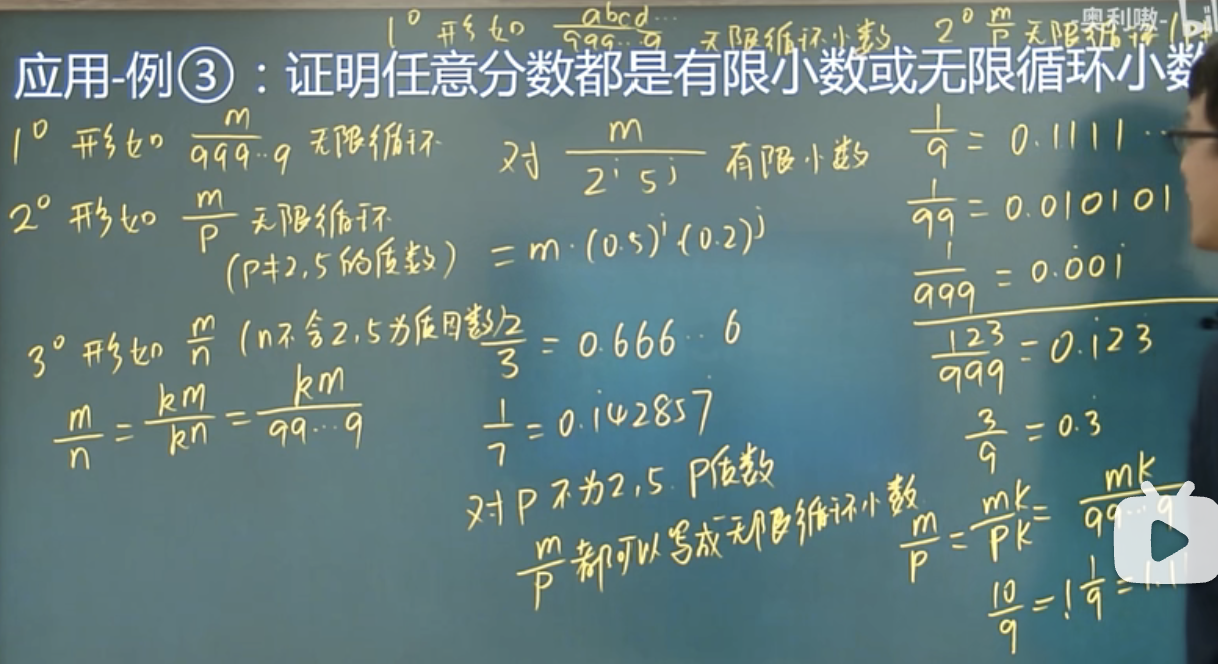 -奥利嗷-
1° 形如 abcd…/999…9 无限循环小数 2° m/p 无限循
应用-例③：证明任意分数都是有限小数或无限循环小数
1° 形如 m/999..9 无限循环
2° 形如 m/p 无限循环
(p≠2,5的质数)
3° 形如 m/n (n不含2,5为质因数)
m/n = km/kn = km/99…9
对 m/2^i 5^j 有限小数
= m·(0.5)^i·(0.2)^j
2/3 = 0.666..6
1/7 = 0.i42857̇
对P不为2,5. P质数
m/p 都可以写成无限循环小数
1/9 = 0.1111…
1/99 = 0.010101
1/999 = 0.0̇01̇
123/999 = 0.1̇23̇
3/9 = 0.3̇
m/p = mk/pk = mk/99…9
10/9 = 1 1/9 = 1.1